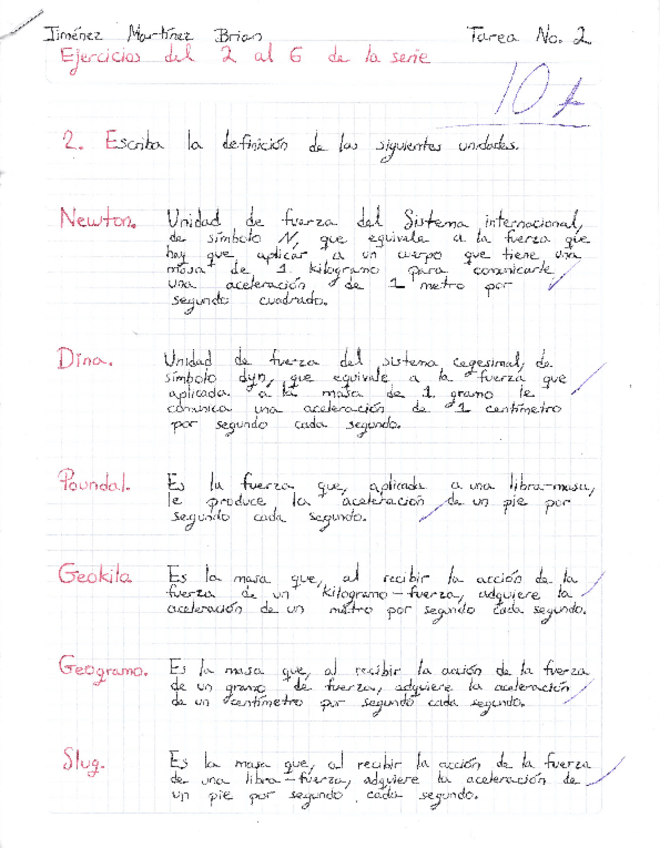 Jiménez Martínez Brian Tarea No. 2
Ejercicios del 2 al 6 de la serie
10
2. Escriba la definición de las siguientes unidades.
Newton. Unidad de fuerza del Sistema internacional,
de símbolo N, que equivale a la fuerza que
hay que aplicar a un cuerpo que tiene una
masa de 1 kilogramo para comunicarle
una aceleración de 1 metro por
segundo cuadrado.
Dina. Unidad de fuerza del sistema cegesimal, de
símbolo dyn, que equivale a la fuerza que
aplicada a la masa de 1 gramo le
comunica una aceleración de 1 centímetro
por segundo cada segundo.
Poundal. Es la fuerza que, aplicada a una libra-masa,
le produce la aceleración de un pie por
segundo cada segundo.
Geokilo Es la masa que, al recibir la acción de la
fuerza de un kilogramo-fuerza, adquiere la
aceleración de un metro por segundo cada segundo.
Geogramo. Es la masa que, al recibir la acción de la fuerza
de un gramo de fuerza, adquiere la aceleración
de un centímetro por segundo cada segundo.
Slug. Es la masa que, al recibir la acción de la fuerza
de una libra-fuerza, adquiere la aceleración de
un pie por segundo cada segundo.